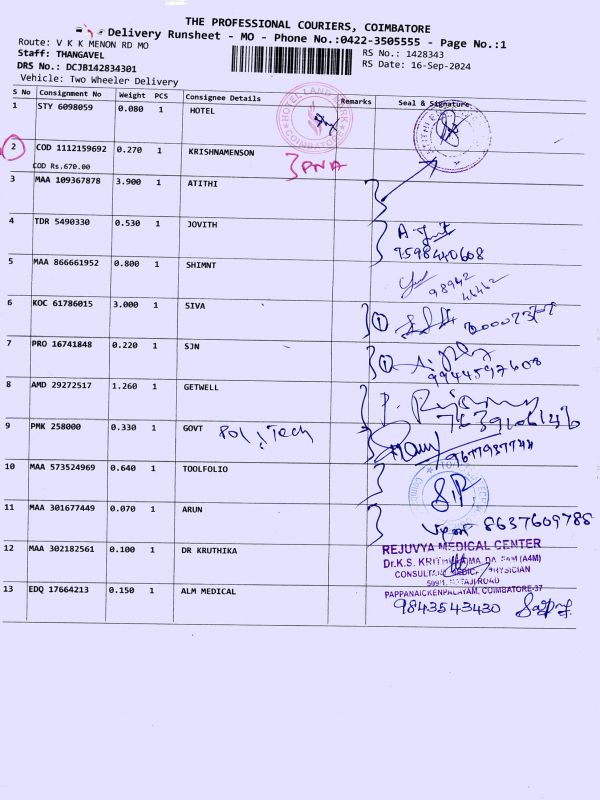 THE PROFESSIONAL COURIERS, COIMBATORE
Delivery Runsheet - MO - Phone No.:0422-3505555 - Page No.:1
Route: V K K MENON RD MO
RS No.: 1428343
Staff: THANGAVEL
RS Date: 16-Sep-2024
DRS No.: DCJB142834301
Vehicle: Two Wheeler Delivery
S No Consignment No Weight PCS Consignee Details Remarks Seal & Signature
1 STY 6098059 0.080 1 HOTEL
HOTEL LANDMARK
COIMBATORE
2 COD 1112159692 0.270 1 KRISHNAMENSON
COD Rs.670.00
PNA
3 MAA 109367878 3.900 1 ATITHI
4 TDR 5490330 0.530 1 JOVITH
9598440608
5 MAA 866661952 0.800 1 SHIMNT
98942
6 KOC 61786015 3.000 1 SIVA
7 PRO 16741848 0.220 1 SJN
9944597608
8 AMD 29272517 1.260 1 GETWELL
9 PMK 258000 0.330 1 GOVT Poly Tech
10 MAA 573524969 0.640 1 TOOLFOLIO
11 MAA 301677449 0.070 1 ARUN
8637609788
12 MAA 302182561 0.100 1 DR KRUTHIKA
REJUVYA MEDICAL CENTER
Dr.K.S. (A4M)
CONSULTANT PHYSICIAN
ROAD
PAPPANAICKENPALAYAM, COIMBATORE-37
13 EDQ 17664213 0.150 1 ALM MEDICAL
9843543430